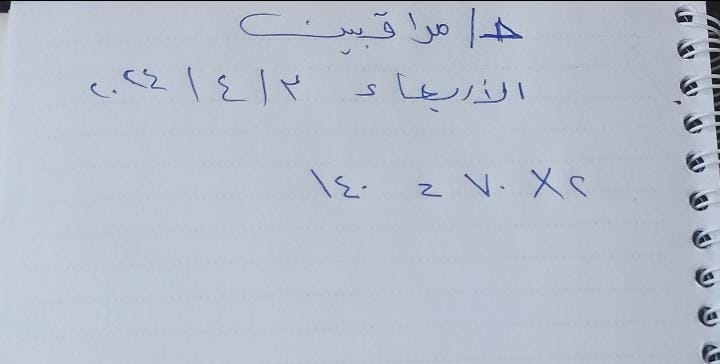 ط/ مراقبين
الأربعاء ٣/٤/٢٠٢٤
٢ × ٧٠ = ١٤٠